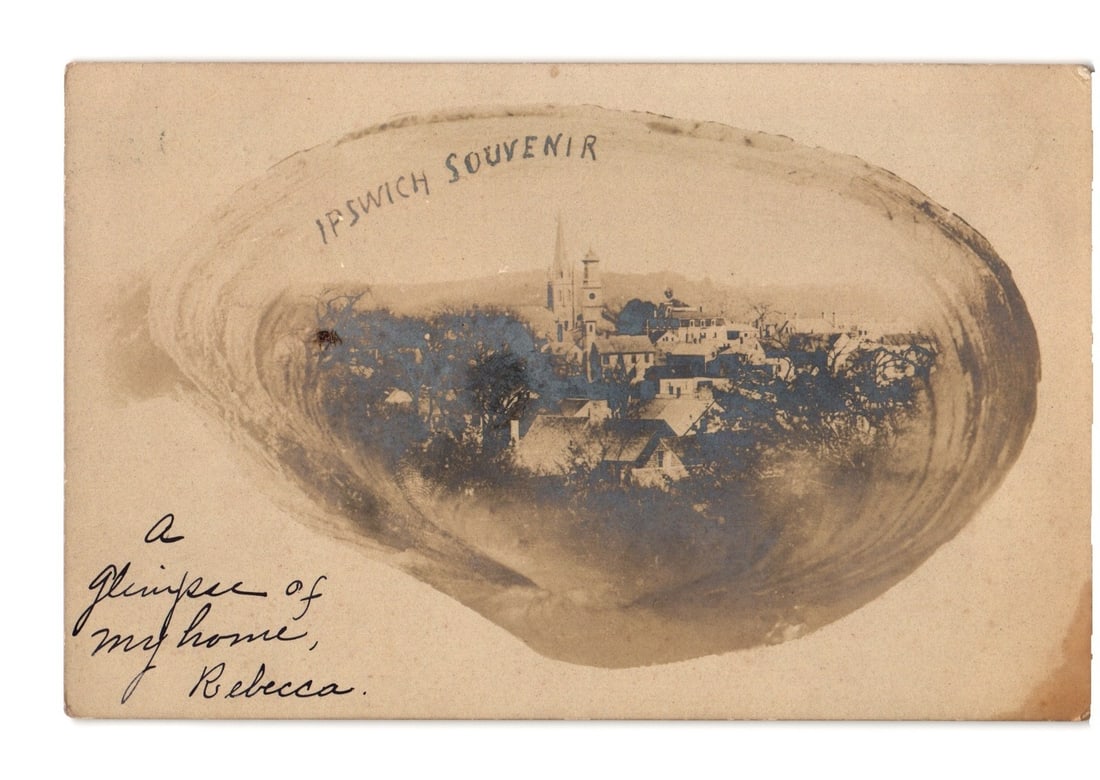 IPSWICH SOUVENIR
a
glimpse of
my home,
Rebecca.